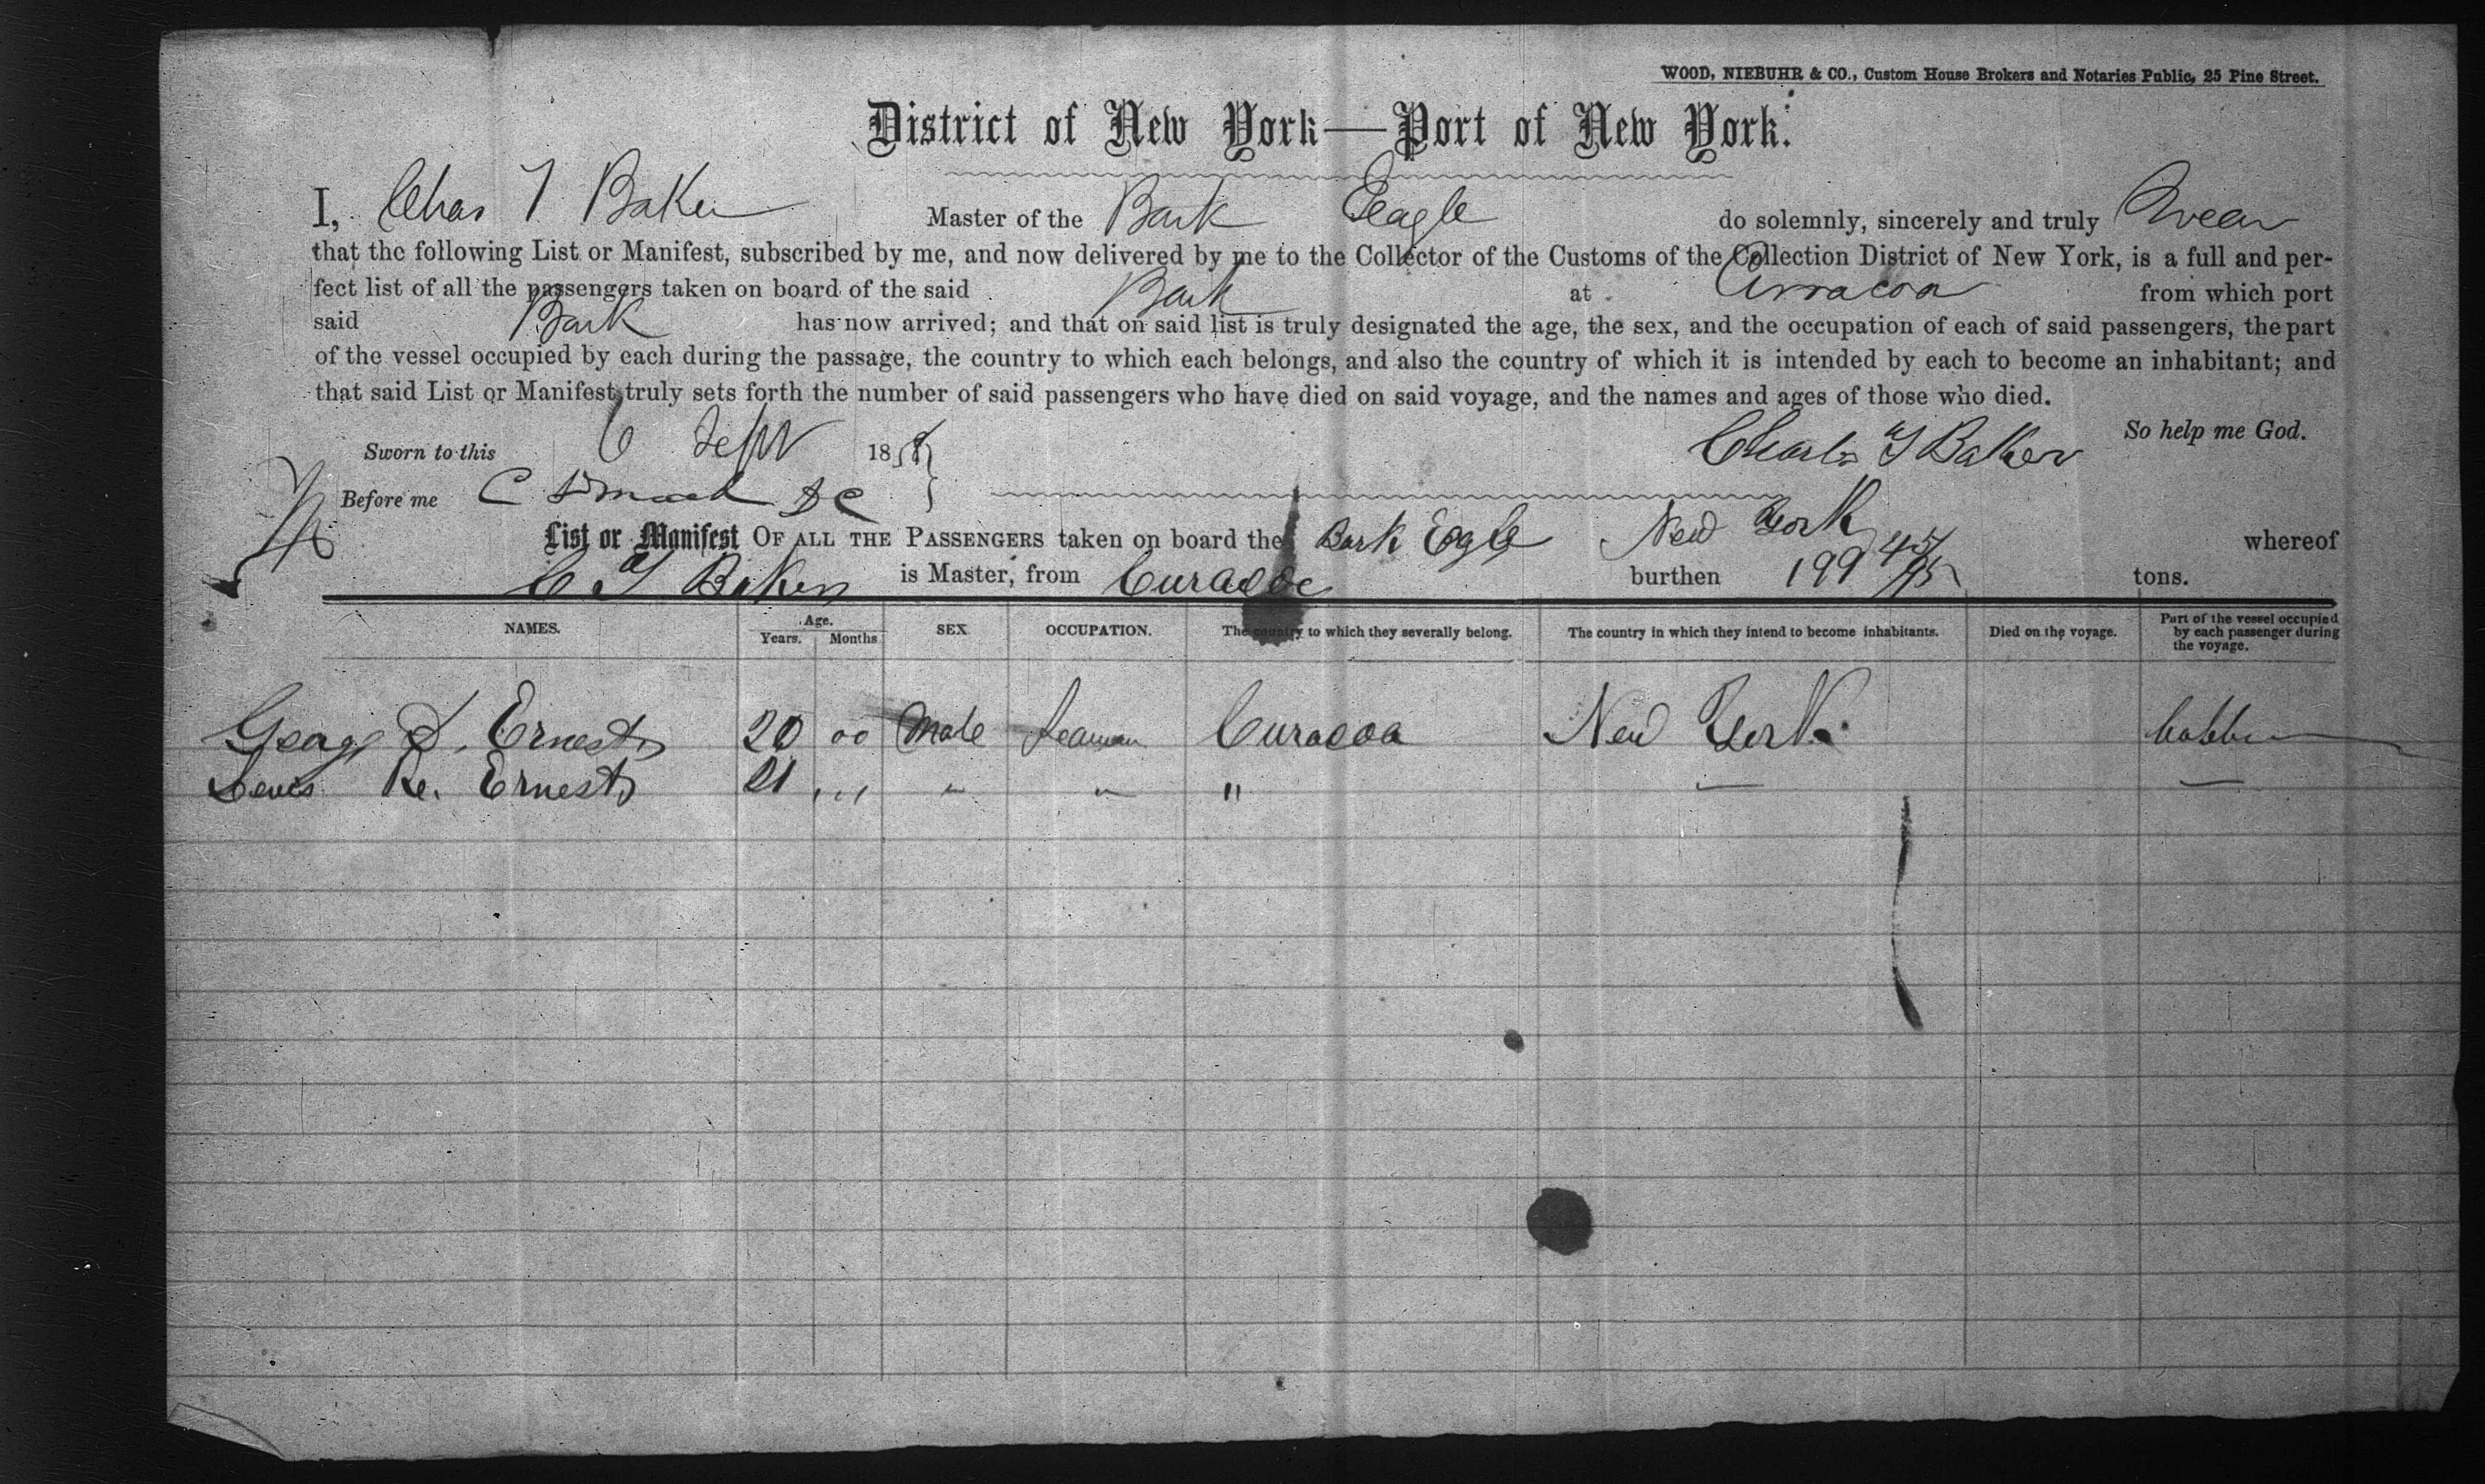 WOOD, NIEBUHR & CO., Custom House Brokers and Notaries Public, 25 Pine Street.
District of New York—Port of New York.
I, Chas T Baker Master of the Bark Eeagle do solemnly, sincerely and truly swear
that the following List or Manifest, subscribed by me, and now delivered by me to the Collector of the Customs of the Collection District of New York, is a full and per-
fect list of all the passengers taken on board of the said Bark at from which port
said Bark has now arrived; and that on said list is truly designated the age, the sex, and the occupation of each of said passengers, the part
of the vessel occupied by each during the passage, the country to which each belongs, and also the country of which it is intended by each to become an inhabitant; and
that said List or Manifest truly sets forth the number of said passengers who have died on said voyage, and the names and ages of those who died.
So help me God.
Sworn to this 6 Sept 1858 Charles T Baker
Before me C
List or Manifest OF ALL THE PASSENGERS taken on board the Bark Eagle New York whereof
C T Baker is Master, from Curacoe burthen 199 45/95 tons.
NAMES. Age. Years. Months SEX OCCUPATION. The country to which they severally belong. The country in which they intend to become inhabitants. Died on the voyage. Part of the vessel occupied by each passenger during the voyage.
George D. Ernests 20 00 Male Seaman Curacoa New York
Ernests 21 " " " "